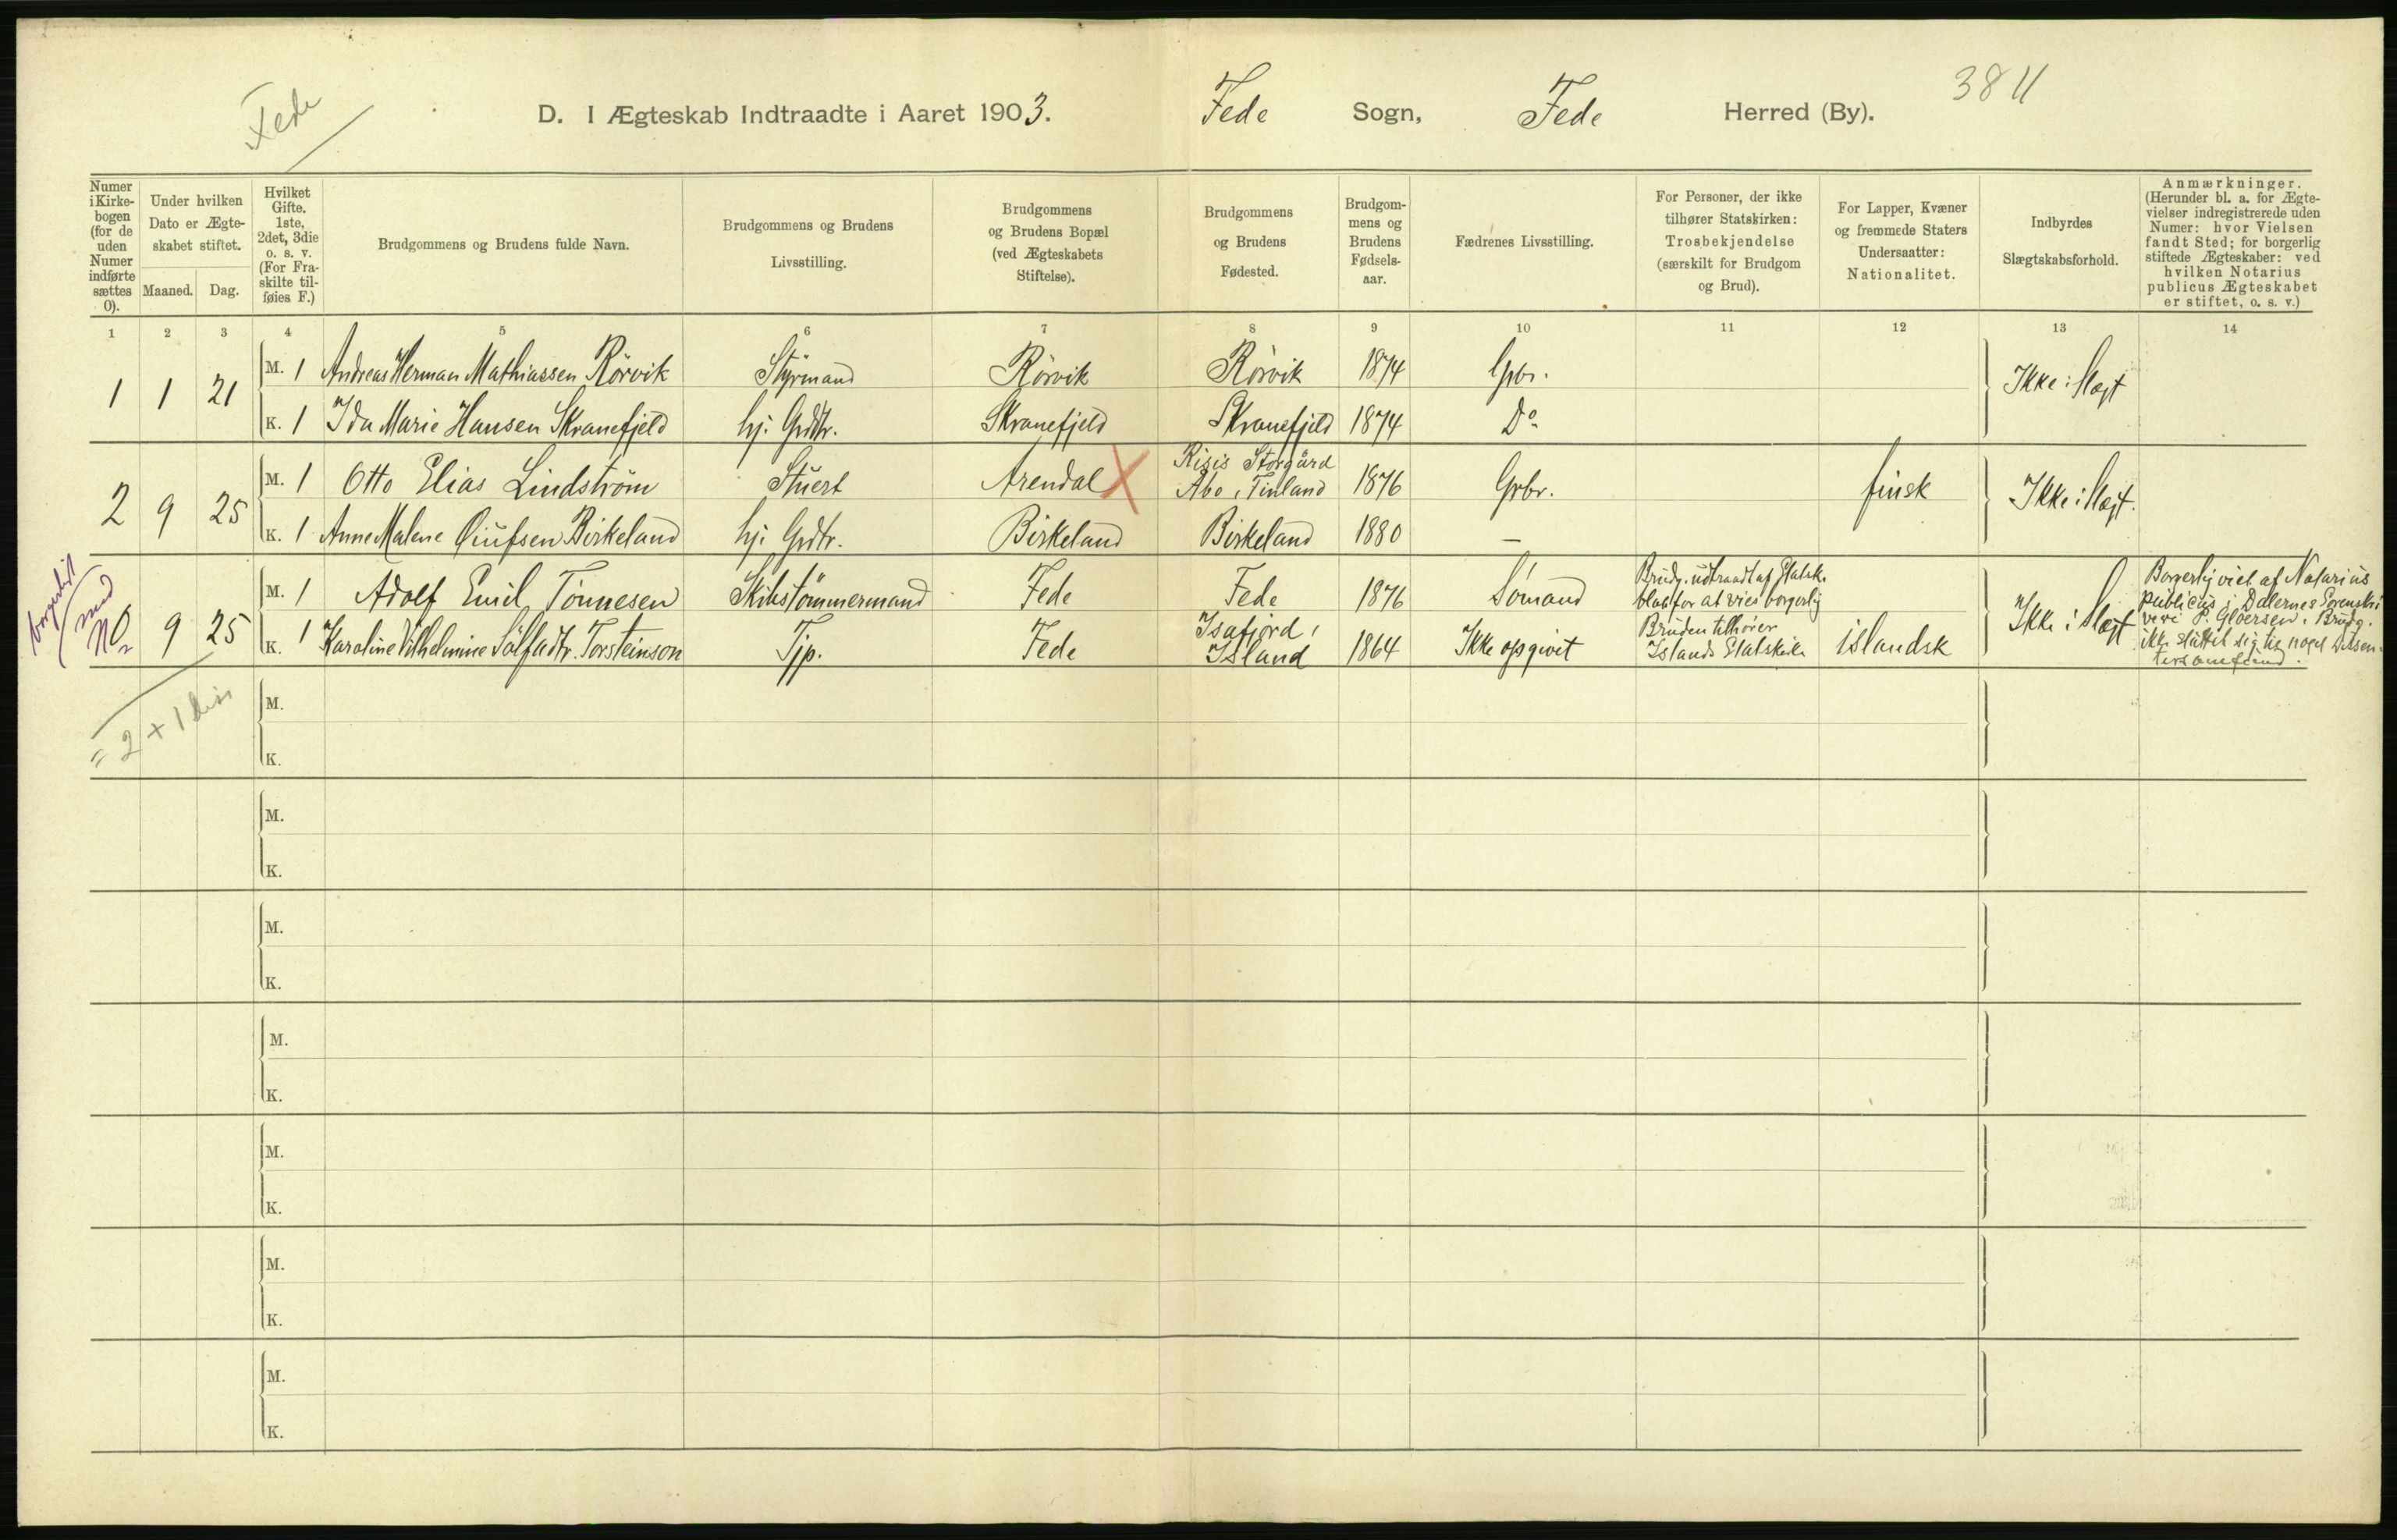 Fede
D. I Ægteskab Indtraadte i Aaret 1903. Fede Sogn, Fede Herred (By). 384
Numer i Kirkebogen (for de uden Numer indførte sættes 0).
Under hvilken Dato er Ægteskabet stiftet.
Maaned. Dag.
Hvilket Gifte. 1ste, 2det, 3die o. s. v. (For Fraskilte tilføies F.)
Brudgommens og Brudens fulde Navn.
Brudgommens og Brudens Livsstilling.
Brudgommens og Brudens Bopæl (ved Ægteskabets Stiftelse).
Brudgommens og Brudens Fødested.
Brudgommens og Brudens Fødselsaar.
Fædrenes Livsstilling.
For Personer, der ikke tilhører Statskirken: Trosbekjendelse (særskilt for Brudgom og Brud).
For Lapper, Kvæner og fremmede Staters Undersaatter: Nationalitet.
Indbyrdes Slægtskabsforhold.
Anmærkninger. (Herunder bl. a. for Ægtevielser indregistrerede uden Numer: hvor Vielsen fandt Sted; for borgerlig stiftede Ægteskaber: ved hvilken Notarius publicus Ægteskabet er stiftet, o. s. v.)
1 2 3 4 5 6 7 8 9 10 11 12 13 14
1 1 21 M. 1 Andreas Herman Mathiassen Rörvik Styrmand Rörvik Rörvik 1874 Gbr. Ikke i Slægt
K. 1 Ida Marie Hansen Skranefjeld hj. Grdtr. Skranefjeld Skranefjeld 1874 Do
2 9 25 M. 1 Otto Elias Lindström Stuert Arendal X Risis Storgård Åbo i Finland 1876 Grbr. finsk Ikke i Slægt.
K. 1 Anne Malene Birkeland hj. Grdtr. Birkeland Birkeland 1880 —
borgerligt
No 9 25 M. 1 Adolf Emil Tönnesen Skibstömmermand Fede Fede 1876 Sömand Brudg. udtraadt af Statsk. blot for at vies borgerlig Ikke i Slægt Borgerlig viet af Notarius publicus i Dalernes Sorenskriveri P. Gloersen. Brudg. ikke sluttet sig til noget Dissentersamfund.
K. 1 Karoline Vilhelmine Torsteinson Tjp. Fede Isafjord, Island 1864 Ikke opgivet Bruden tilhører Islands Statskirke islandsk
= 2 + 1 diss
M.
K.
M.
K.
M.
K.
M.
K.
M.
K.
M.
K.
M.
K.